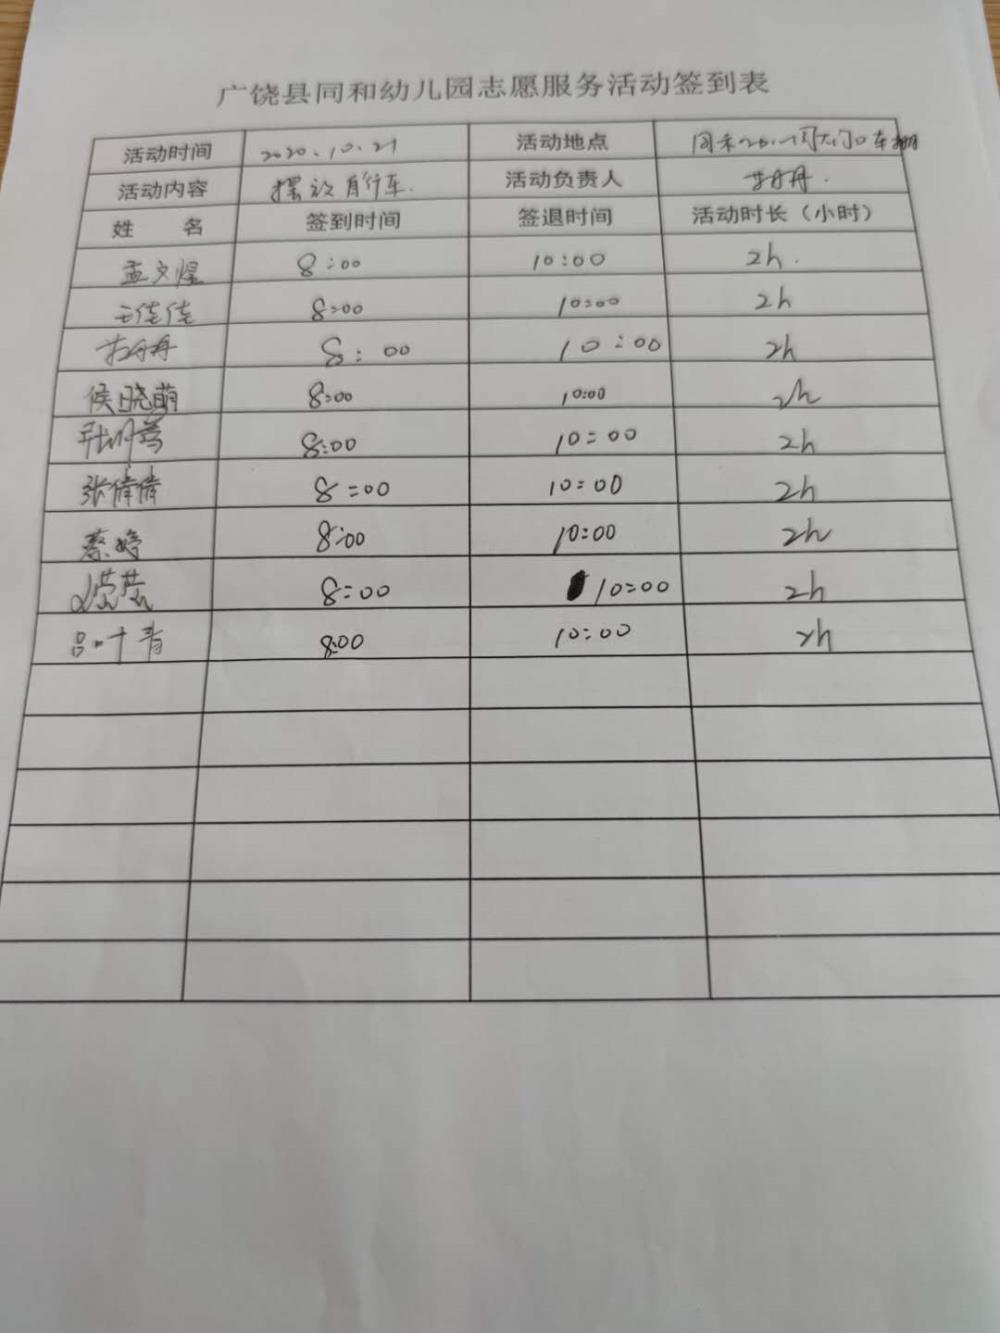 广饶县同和幼儿园志愿服务活动签到表
活动时间 2020.10.21 活动地点 同和 大门口车棚
活动内容 摆放自行车. 活动负责人 丹丹.
姓 名 签到时间 签退时间 活动时长（小时）
孟文煜 8:00 10:00 2h.
王佳佳 8:00 10:00 2h
丹丹 8:00 10:00 2h
侯晓萌 8:00 10:00 2h
8:00 10:00 2h
张倩倩 8:00 10:00 2h
蔡婷 8:00 10:00 2h
莹莹 8:00 10:00 2h
吕叶青 8:00 10:00 2h